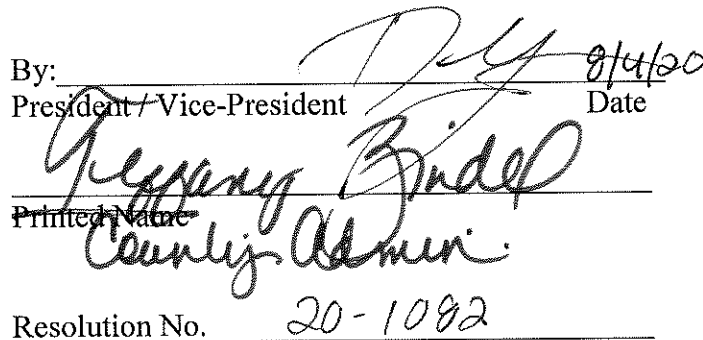 By: 8/4/20
President / Vice-President Date
Tiffany Bindel
Printed Name
County Admin.
Resolution No. 20-1082